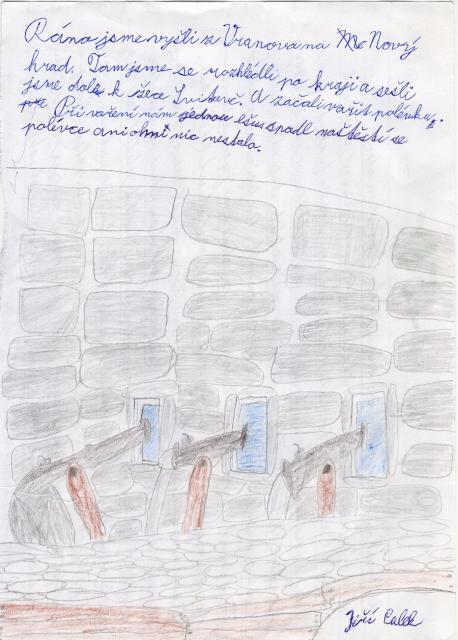 Ráno jsme vyšli z Vranova na Nový
hrad. Tam jsme se rozhlédli po kraji a sešli
jsme dole k řece Svitavě. A začali vařit polévku.
Při vaření nám jednou ešus spadl naštěstí se
polévce ani ohni nic nestalo.
Jiří Calek